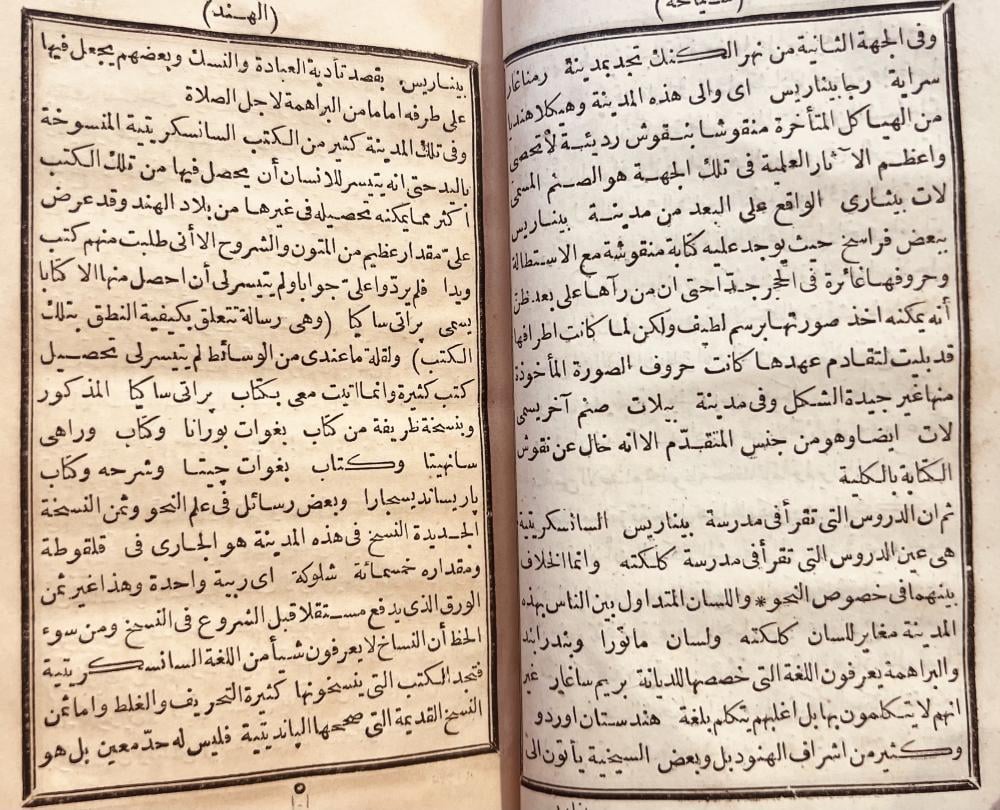 (سياحة)
وفى الجهة الثانية من نهر الكنك تجد بمدينة رمناغار
سراية رجا بيناريس اى والى هذه المدينة وهيكلا هنديا
من الهياكل المتأخرة منقوشا بنقوش رديئة لا تحصى
واعظم الآثار العلمية فى تلك الجهة هو الصنم المسمى
لات بيشارى الواقع على البعد من مدينة بيناريس
ببعض فراسخ حيث يوجد عليه كتابة منقوشة مع الاستطالة
وحروفها غائرة فى الحجر جدا حتى ان من رآها على بعد ظن
أنه يمكنه اخذ صورتها برسم لطيف ولكن لما كانت اطرافها
قد بليت لتقادم عهدها كانت حروف الصورة المأخوذة
منها غير جيدة الشكل وفى مدينة بيلات صنم آخر يسمى
لات ايضا وهو من جنس المتقدّم الا انه خال عن نقوش
الكتابة بالكلية
ثم ان الدروس التى تقرأ فى مدرسة بيناريس السانسكريتية
هى عين الدروس التى تقرأ فى مدرسة كلكته وانما الخلاف
بينهما فى خصوص النحو * واللسان المتداول بين الناس بهذه
المدينة مغاير للسان كلكته ولسان ماتورا وبندرابند
والبراهمة يعرفون اللغة التى خصصها للديانة بريم ساغار غير
انهم لا يتكلمون بها بل اغلبهم يتكلم بلغة هندستان اوردو
وكثير من اشراف الهنود بل وبعض السيخية يأتون الى
(الهند)
بيناريس بقصد تأدية العبادة والنسك وبعضهم يجعل فيها
على طرفه اماما من البراهمة لاجل الصلاة
وفى تلك المدينة كثير من الكتب السانسكريتية المنسوخة
باليد حتى انه يتيسر للانسان أن يحصل فيها من تلك الكتب
أكثر مما يمكنه تحصيله فى غيرها من بلاد الهند وقد عرض
علىّ مقدار عظيم من المتون والشروح الا أنى طلبت منهم كتب
ويدا فلم يردّوا علىّ جوابا ولم يتيسر لى أن احصل منها الا كتابا
يسمى پراتى ساكيا (وهى رسالة تتعلق بكيفية النطق بتلك
الكتب) ولقلة ما عندى من الوسائط لم يتيسر لى تحصيل
كتب كثيرة وانما اتيت معى بكتاب پراتى ساكيا المذكور
وبنسخة ظريفة من كتاب بغوات بورانا وكتاب وراهى
سانهيتا وكتاب بغوات چيتا وشرحه وكتاب
پاريساند يسچارا وبعض رسائل فى علم النحو وثمن النسخة
الجديدة النسخ فى هذه المدينة هو الجارى فى قلقوطة
ومقداره خمسمائة شلوكة اى ربية واحدة وهذا غير ثمن
الورق الذى يدفع مستقلا قبل الشروع فى النسخ ومن سوء
الحظ أن النساخ لا يعرفون شيأ من اللغة السانسكريتية
فتجد الكتب التى ينسخونها كثيرة التحريف والغلط واما ثمن
النسخ القديمة التى صححها الپانديتية فليس له حدّ معين بل هو
١٠١